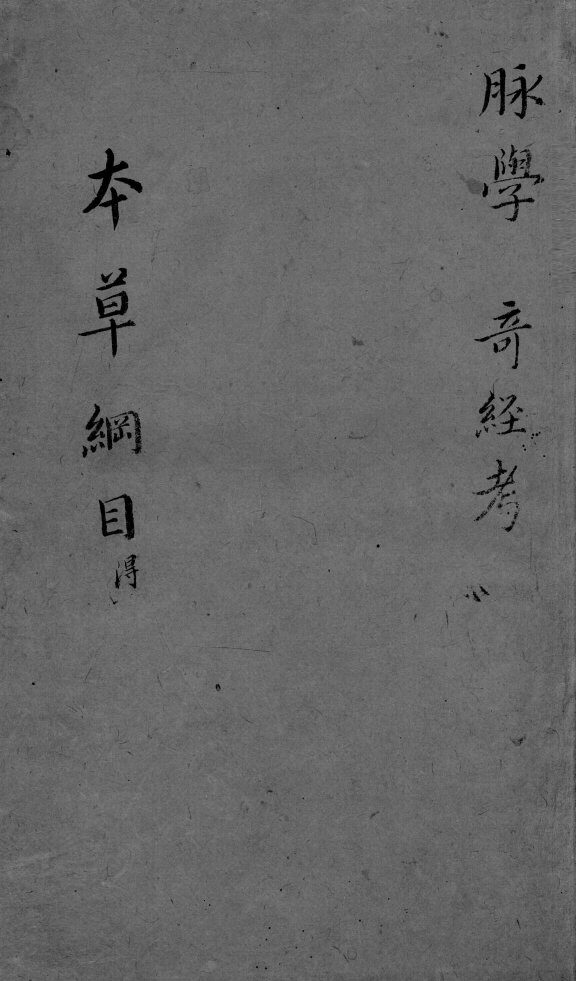 脉學 奇經考
本草綱目得